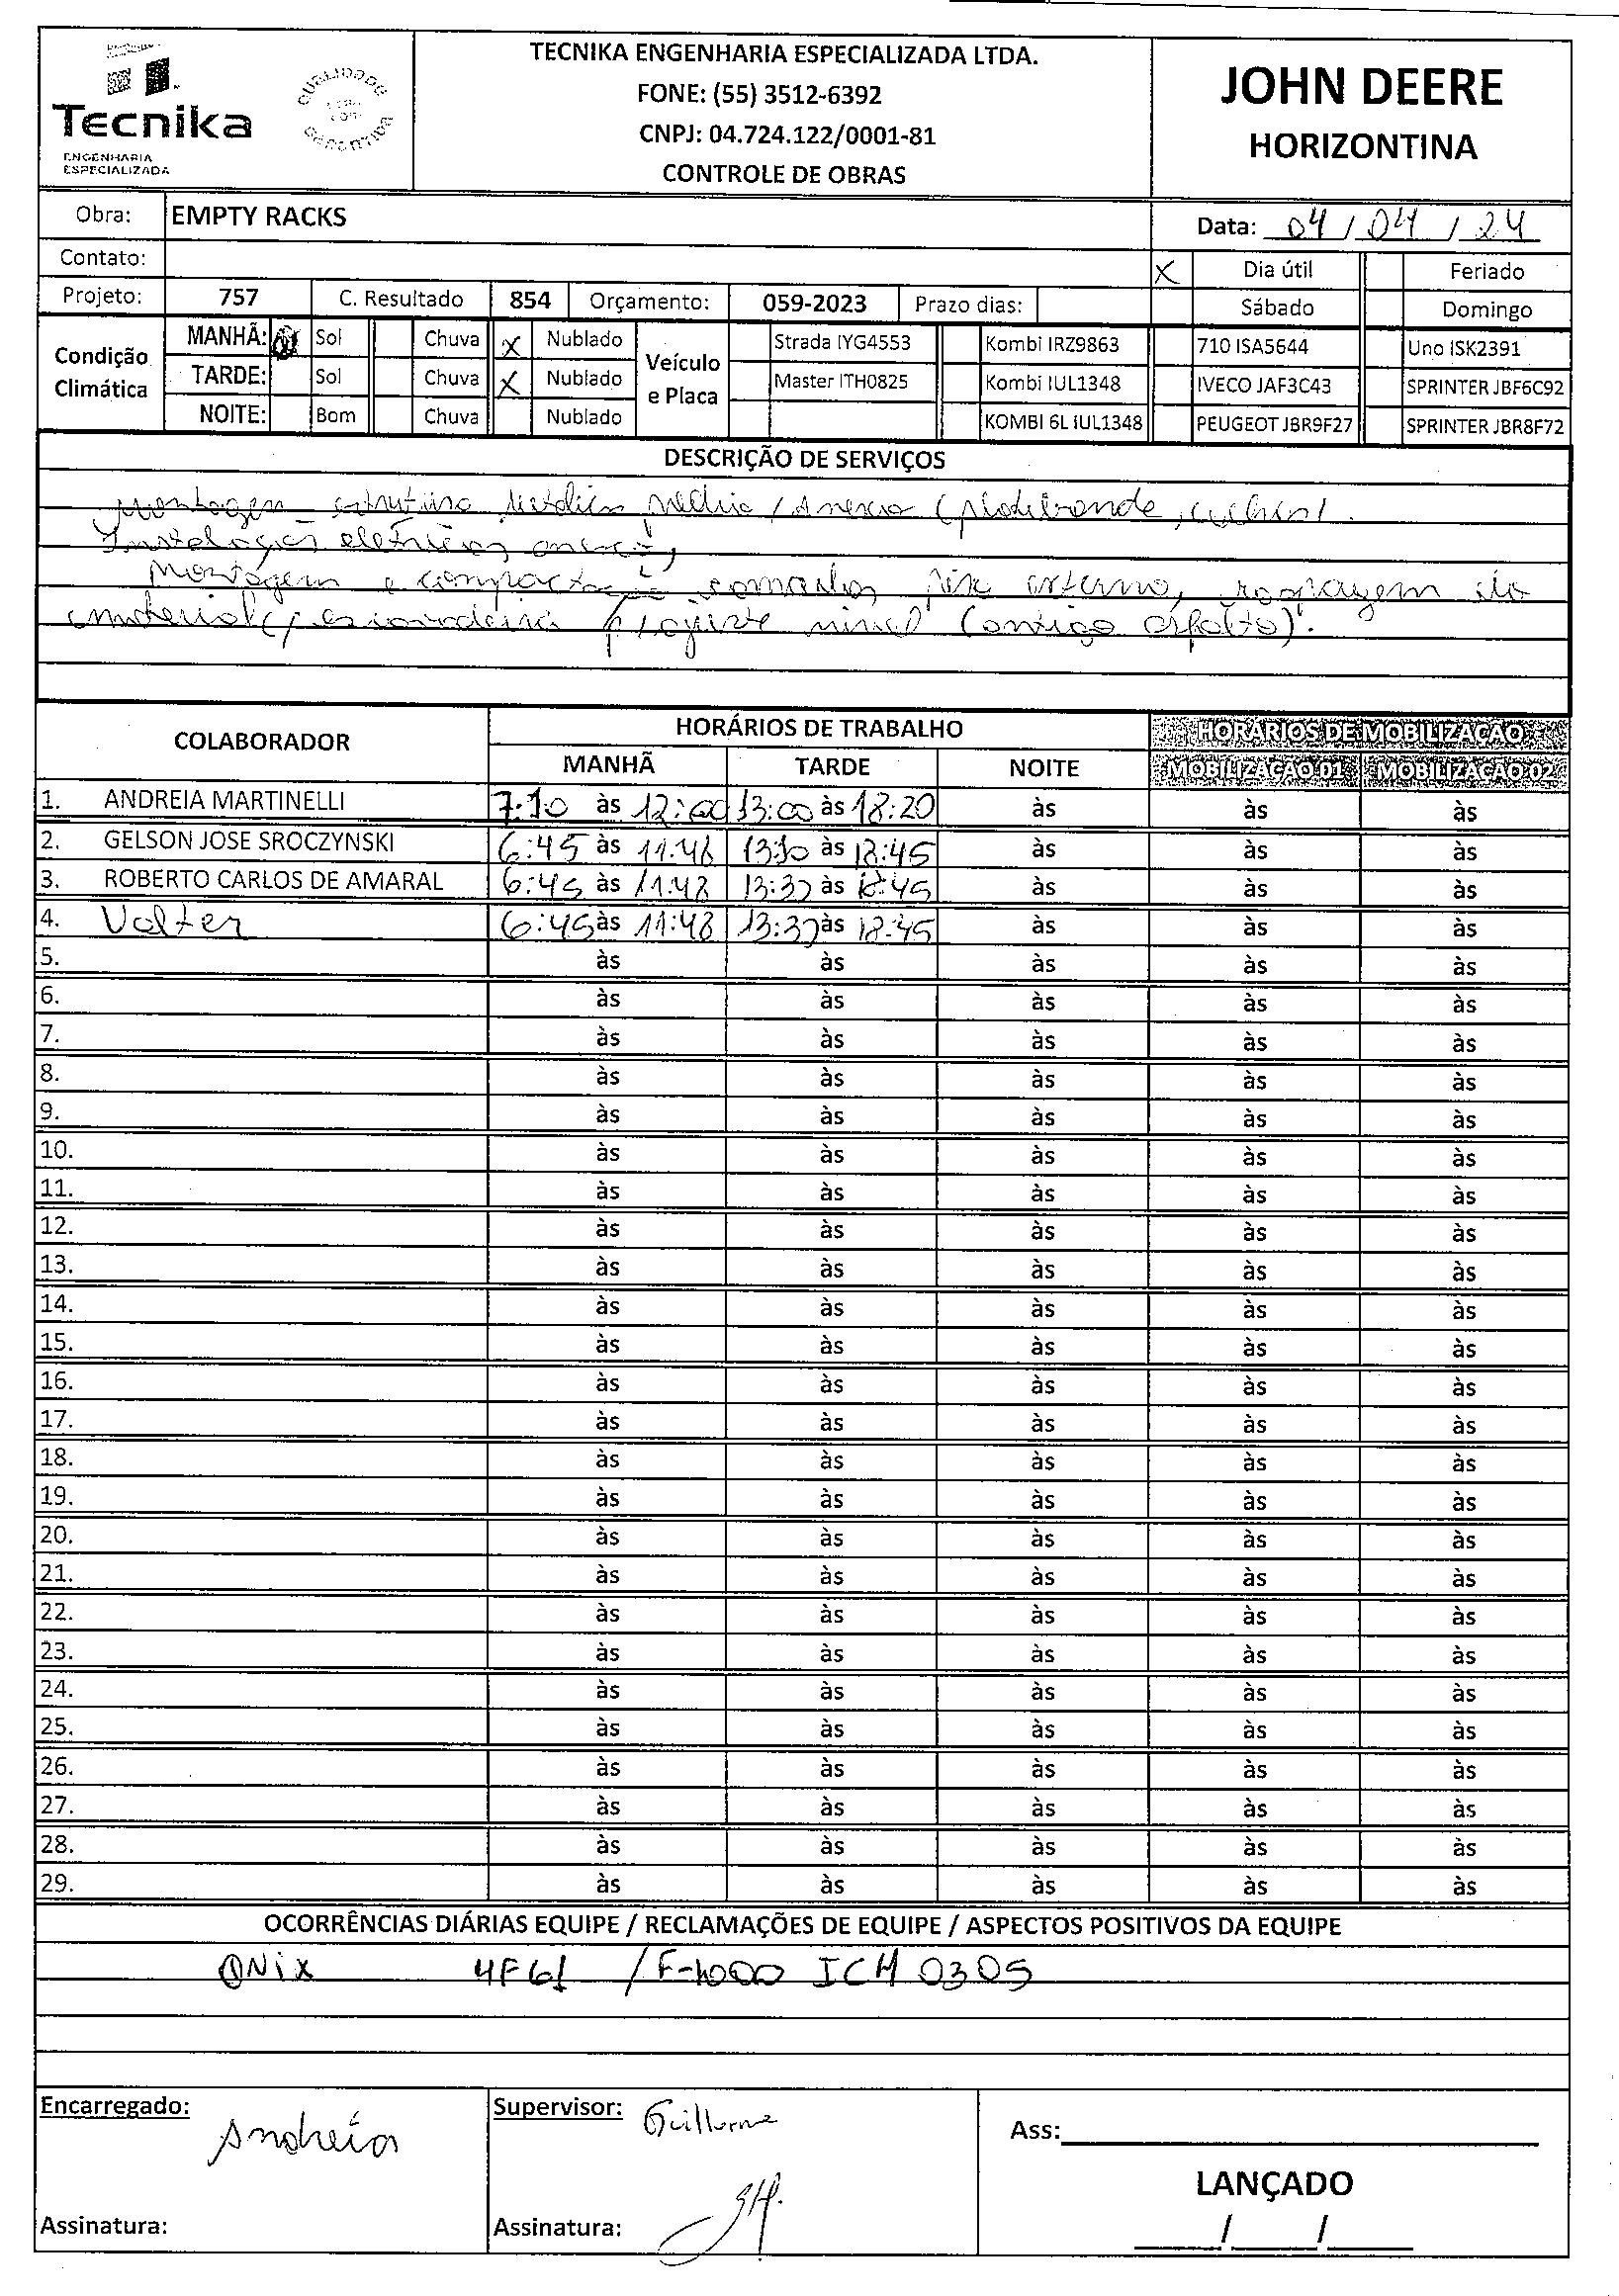 Tecnika
ENGENHARIA
ESPECIALIZADA
QUALIDADE
GARANTIDA
TECNIKA ENGENHARIA ESPECIALIZADA LTDA.
FONE: (55) 3512-6392
CNPJ: 04.724.122/0001-81
CONTROLE DE OBRAS
JOHN DEERE
HORIZONTINA
Obra: EMPTY RACKS
Data: 04 / 04 / 24
Contato:
X Dia útil Feriado
Projeto: 757 C. Resultado 854 Orçamento: 059-2023 Prazo dias: Sábado Domingo
Condição Climática
MANHÃ: Sol Chuva X Nublado
TARDE: Sol Chuva X Nublado
NOITE: Bom Chuva Nublado
Veículo e Placa
Strada IYG4553 Kombi IRZ9863 710 ISA5644 Uno ISK2391
Master ITH0825 Kombi IUL1348 IVECO JAF3C43 SPRINTER JBF6C92
KOMBI 6L IUL1348 PEUGEOT JBR9F27 SPRINTER JBR8F72
DESCRIÇÃO DE SERVIÇOS
Montagem estrutura metálica / Anexo (platibanda,
Instalações elétricas anexo,
Montagem e camadas piso externo, raspagem do
material p/ ajuste nível (antigo asfalto).
COLABORADOR HORÁRIOS DE TRABALHO HORÁRIOS DE MOBILIZAÇÃO
MANHÃ TARDE NOITE MOBILIZAÇÃO 01 MOBILIZAÇÃO 02
1. ANDREIA MARTINELLI às 12:00 13:00 às 18:20 às às às
2. GELSON JOSE SROCZYNSKI 6:45 às 11:48 às 18:45 às às às
3. ROBERTO CARLOS DE AMARAL 6:45 às 11:48 às 18:45 às às às
4. Valter 6:45 às 11:48 às 18:45 às às às
5. às às às às às
6. às às às às às
7. às às às às às
8. às às às às às
9. às às às às às
10. às às às às às
11. às às às às às
12. às às às às às
13. às às às às às
14. às às às às às
15. às às às às às
16. às às às às às
17. às às às às às
18. às às às às às
19. às às às às às
20. às às às às às
21. às às às às às
22. às às às às às
23. às às às às às
24. às às às às às
25. às às às às às
26. às às às às às
27. às às às às às
28. às às às às às
29. às às às às às
OCORRÊNCIAS DIÁRIAS EQUIPE / RECLAMAÇÕES DE EQUIPE / ASPECTOS POSITIVOS DA EQUIPE
ONIX 4F61 / F-1000 ICH 0305
Encarregado: Andreia
Supervisor: Guilherme
Ass:
LANÇADO
Assinatura:
Assinatura:
/ /